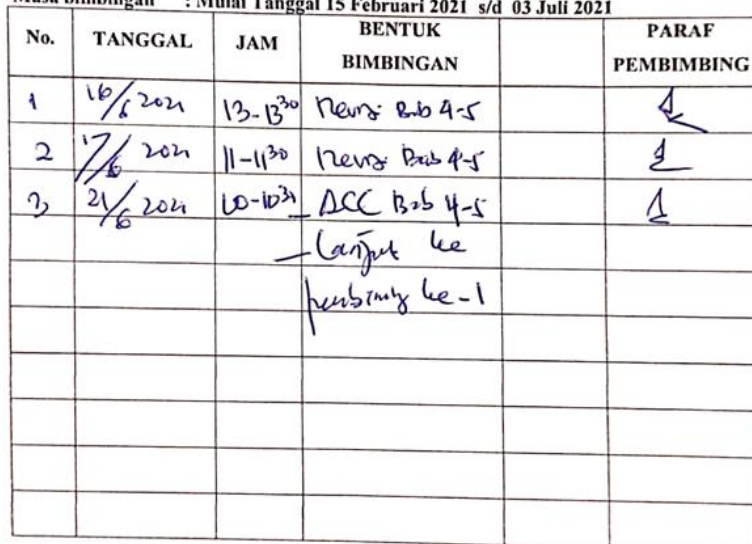 Masa bimbingan : Mulai Tanggal 15 Februari 2021 s/d 03 Juli 2021
No. TANGGAL JAM BENTUK BIMBINGAN PARAF PEMBIMBING
1 16/6 2021 13-13³⁰ Revisi Bab 4-5
2 17/6 2021 11-11³⁰ Revisi Bab 4-5
3 21/6 2021 10-10³⁰ - ACC Bab 4-5
- Lanjut ke
pembimbing ke-1